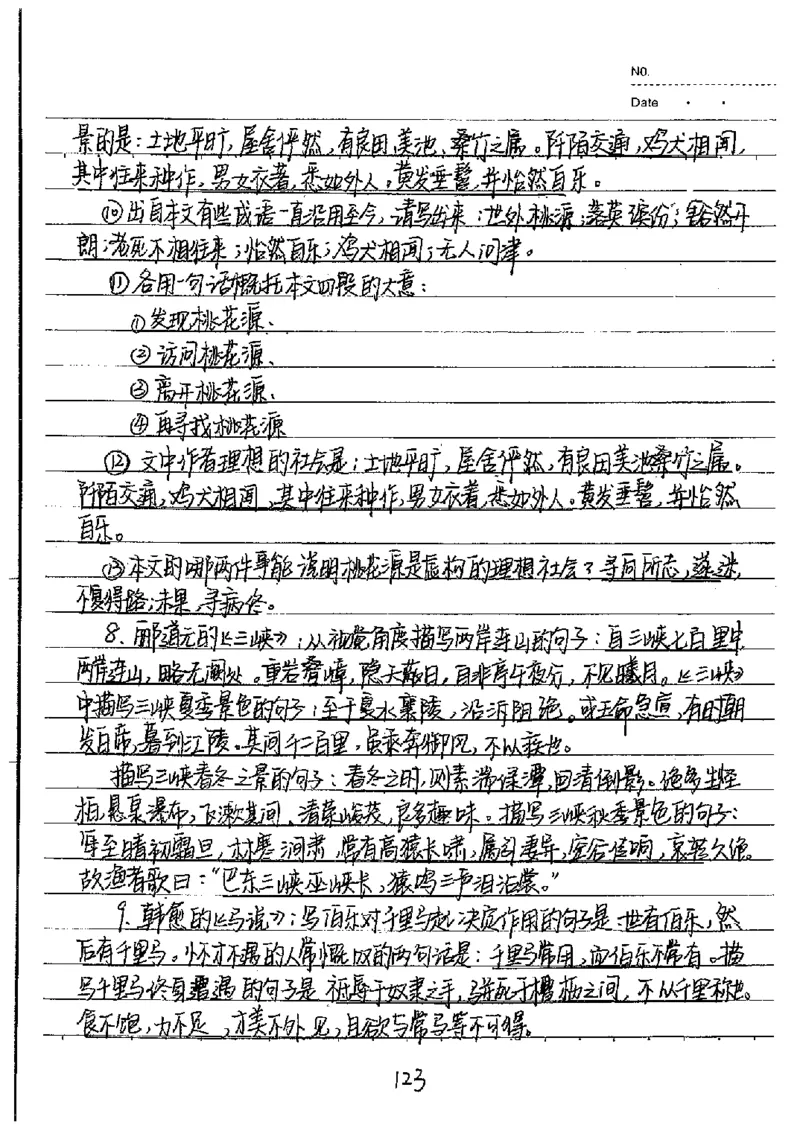 No.
Date
景的是：土地平旷，屋舍俨然，有良田、美池、桑竹之属。阡陌交通，鸡犬相闻，
其中往来种作，男女衣著，悉如外人。黄发垂髫，并怡然自乐。
⑩出自本文有些成语一直沿用至今，请写出来：世外桃源；落英缤纷；豁然开
朗；老死不相往来；怡然自乐；鸡犬相闻；无人问津。
⑪各用一句话概括本文四段的大意：
①发现桃花源、
②访问桃花源、
③离开桃花源、
④再寻找桃花源
⑫文中作者理想的社会是：土地平旷，屋舍俨然，有良田美池桑竹之属。
阡陌交通，鸡犬相闻，其中往来种作，男女衣著，悉如外人。黄发垂髫，并怡然
自乐。
⑬本文的哪两件事能说明桃花源是虚构的理想社会？寻向所志，遂迷，
不复得路；未果，寻病终。
8、郦道元的《三峡》：从视觉角度描写两岸连山的句子：自三峡七百里中，
两岸连山，略无阙处。重岩叠嶂，隐天蔽日，自非亭午夜分，不见曦月。《三峡》
中描写三峡夏季景色的句子：至于夏水襄陵，沿泝阻绝。或王命急宣，有时朝
发白帝，暮到江陵。其间千二百里，虽乘奔御风，不以疾也。
描写三峡春冬之景的句子：春冬之时，则素湍绿潭，回清倒影。绝多生怪
柏，悬泉瀑布，飞漱其间、清荣峻茂，良多趣味。描写三峡秋季景色的句子：
每至晴初霜旦，林寒涧肃，常有高猿长啸，属引凄异，空谷传响，哀转久绝。
故渔者歌曰：“巴东三峡巫峡长，猿鸣三声泪沾裳。”
9、韩愈的《马说》：写伯乐对千里马起决定作用的句子是世有伯乐，然
后有千里马。怀才不遇的人常慨叹的两句话是：千里马常用，而伯乐不常有。描
写千里马终身遭遇的句子是祗辱于奴隶之手，骈死于槽枥之间，不以千里称也。
食不饱，力不足，才美不外见，且欲与常马等不可得。
123